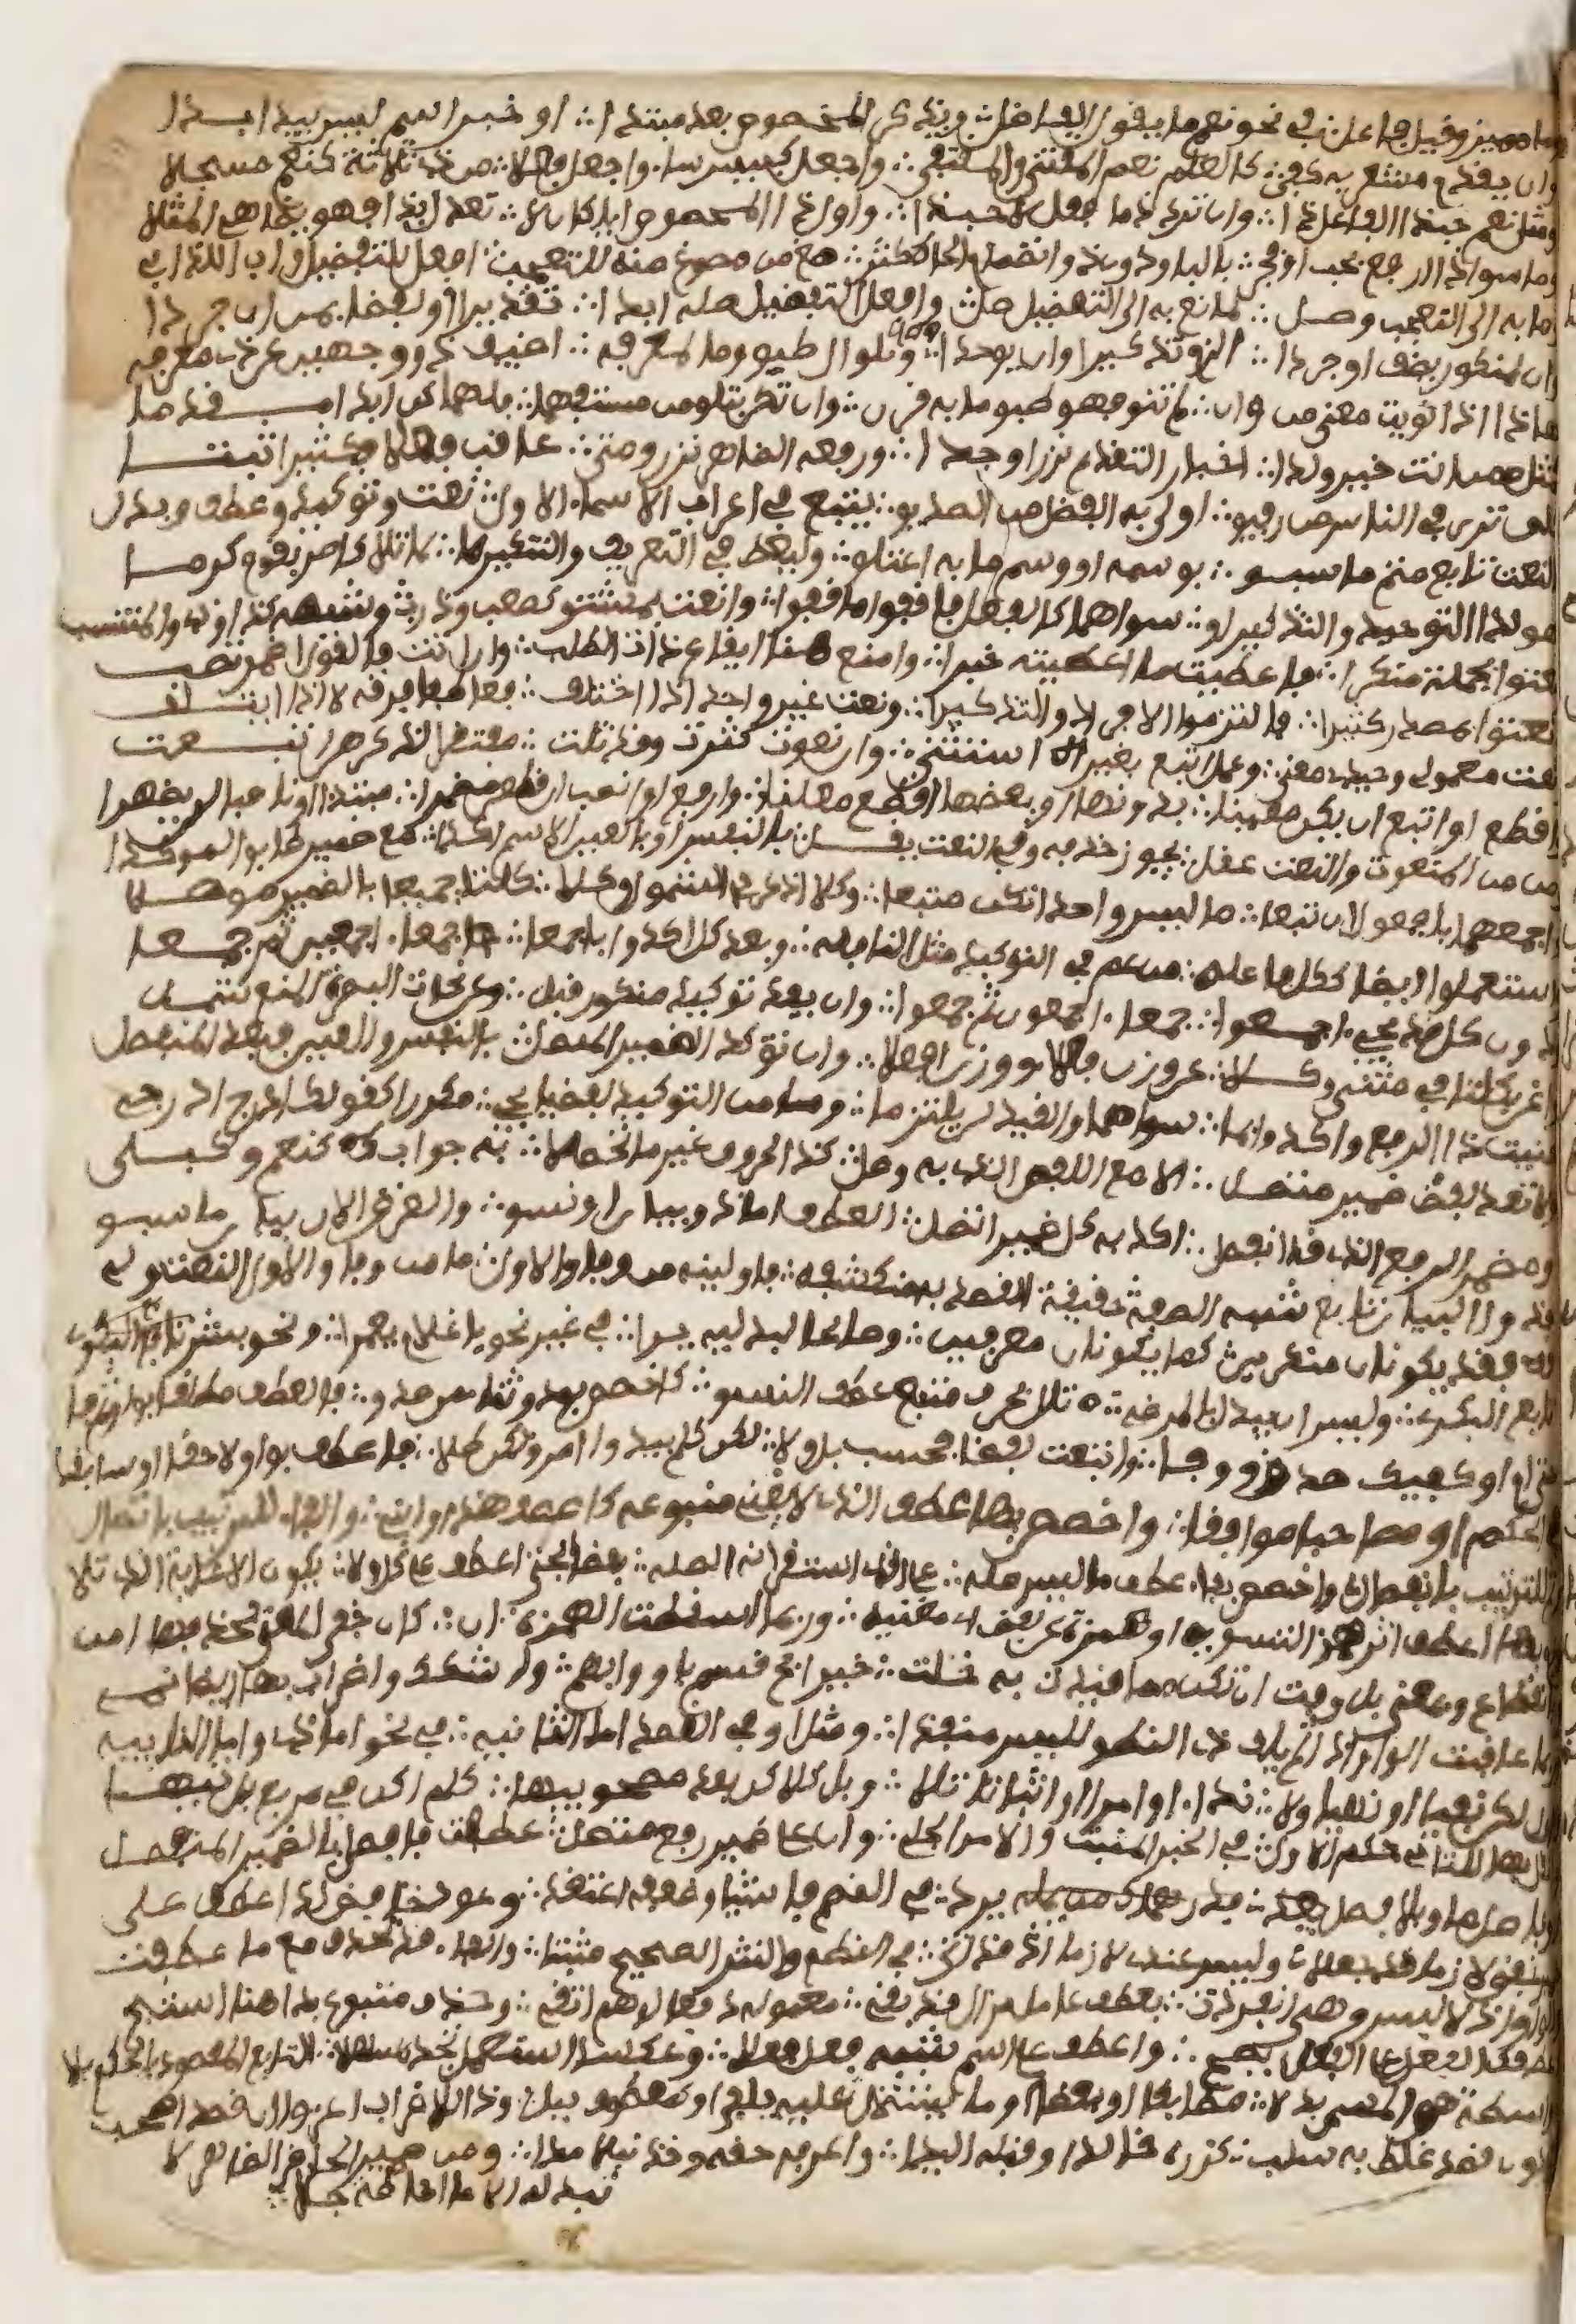 وما مميز وقيل فاعل ∴ في نحو نعم ما يقول الفاضل ∴ ويذكر المخصوص بعد مبتدا ∴ او خبر اسم ليس يبدو ابدا
وان يقدم مشعر به كفى ∴ كالعلم نعم المقتنى والمقتفى ∴ واجعل كبيس ساء واجعل فعلا ∴ من ذي ثلاثة كنعم مسجلا
ومثل نعم حبذا الفاعل ذا ∴ وان ترد ذما فقل لا حبذا ∴ واول ذا المخصوص ايا كان لا ∴ تعدل بذا فهو يضاهي المثلا
وما سوى ذا ارفع بحب او فجر ∴ بالبا ودون ذا انضمام الحا كثر ∴ صغ من مصوغ منه للتعجب ∴ افعل للتفضيل واب اللذ ابي
وما به الى التعجب وصل ∴ لمانع به الى التفضيل صل ∴ وافعل التفضيل صله ابدا ∴ تقديرا او لفظا بمن ان جردا
وان لمنكور يضف او جردا ∴ الزم تذكيرا وان يوحدا ∴ وتلو ال طبق وما لمعرفه ∴ اضيف ذو وجهين عن ذي معرفه
هاذا اذا نويت معنى من وان ∴ لم تنو فهو طبق ما به قرن ∴ وان تكن بتلو من مستفهما ∴ فلهما كن ابدا مقدما
كمثل ممن انت خير ولدا ∴ اخبار التقديم نزرا وجدا ∴ ورفعه الظاهر نزر ومتى ∴ عاقب فعلا فكثيرا ثبتا
كلن ترى في الناس من رفيق ∴ اولى به الفضل من الصديق ∴ يتبع في اعراب الاسماء الاول ∴ نعت وتوكيد وعطف وبدل
النعت تابع متم ما سبق ∴ بوسمه او وسم ما به اعتلق ∴ وليعط في التعريف والتنكير ما ∴ لما تلا كامرر بقوم كرما
وهو لدا التوحيد والتذكير او ∴ سواهما كالفعل فاقف ما قفوا ∴ وانعت بمشتق كصعب وذرب ∴ وشبهه كذا وذي والمنتسب
ونعتوا بجملة منكرا ∴ فاعطيت ما اعطيته خبرا ∴ وامنع هنا ايقاع ذات الطلب ∴ وان اتت فالقول اضمر تصب
ونعتوا بمصدر كثيرا ∴ فالتزموا الافراد والتذكيرا ∴ ونعت غير واحد اذا اختلف ∴ فعاطفا فرقه لا اذا ايتلف
ونعت معمولي وحيدي معنى ∴ وعمل اتبع بغير استثنى ∴ وان نعوت كثرت وقد تلت ∴ مفتقرا لذكرهن اتبعت
واقطع او اتبع ان يكن معينا ∴ بدونها او بعضها اقطع معلنا ∴ وارفع او انصب ان قطعت مضمرا ∴ مبتدا او ناصبا لن يظهرا
وما من المنعوت والنعت عقل ∴ يجوز حذفه وفي النعت يقل ∴ بالنفس او بالعين الاسم اكدا ∴ مع ضمير طابق الموكدا
واجمعهما بافعل ان تبعا ∴ ما ليس واحدا تكن متبعا ∴ وكلا اذكر في الشمول وكلا ∴ كلتا جميعا بالضمير موصلا
واستعملوا ايضا ككل فاعله ∴ من عم في التوكيد مثل النافله ∴ وبعد كل اكدوا باجمعا ∴ جمعاء اجمعين ثم جمعا
ودون كل قد يجي اجمع ∴ جمعاء اجمعون ثم جمع ∴ وان يفد توكيد منكور قبل ∴ وعن نحات البصرة المنع شمل
واغن بكلتا في مثنى وكلا ∴ عن وزن فعلاء ووزن افعلا ∴ وان توكد الضمير المتصل ∴ بالنفس والعين فبعد المنفصل
عنيت ذا الرفع واكدوا بما ∴ سواهما والقيد لن يلتزما ∴ وما من التوكيد لفظي يجي ∴ مكررا كقولك ادرج ادرجي
ولا تعد لفظ ضمير متصل ∴ الا مع اللفظ الذي به وصل ∴ كذا الحروف غير ما تحصلا ∴ به جواب كنعم وكبلى
ومضمر الرفع الذي قد انفصل ∴ اكد به كل ضمير اتصل ∴ العطف اما ذو بيان او نسق ∴ والغرض الان بيان ما سبق
فذو البيان تابع شبه الصفه ∴ حقيقة القصد به منكشفه ∴ فاولينه من وفاق الاول ∴ ما من وفاق الاول النعت ولي
فقد يكونان منكرين ∴ كما يكونان معرفين ∴ وصالحا لبدلية يرا ∴ في غير نحو يا غلام يعمرا ∴ ونحو بشر تابع البكري
تابع البكري ∴ وليس ان يبدل بالمرضي ∴ تال بحرف متبع عطف النسق ∴ كاخصص بود وثناء من صدق ∴ فالعطف مطلقا بواو ثم فا
حتى ام او كفيك صدق ووفا ∴ واتبعت لفظا فحسب بل ولا ∴ لكن كلم يبد امرو لكن طلا ∴ فاعطف بواو لاحقا او سابقا
في الحكم او مصاحبا موافقا ∴ واخصص بها عطف الذي لا يغني متبوعه كاصطف هذا وابني ∴ والفاء للترتيب باتصال
وثم للترتيب بانفصال ∴ واخصص بفاء عطف ما ليس صله ∴ على الذي استقر انه الصله ∴ بعضا بحتى اعطف على كل ولا ∴ يكون الا غاية الذي تلا
وام بها اعطف اثر همز التسويه ∴ او همزة عن لفظ اي مغنيه ∴ وربما اسقطت الهمزة ان ∴ كان خفا المعنى بحذفها امن
وبانقطاع وبمعنى بل وفت ∴ ان تك مما قيدت به خلت ∴ خير ابح قسم باو وابهم ∴ واشكك واضراب بها ايضا نمي
وربما عاقبت الواو اذا ∴ لم يلف ذو النطق للبس منفذا ∴ ومثل او في القصد اما الثانيه ∴ في نحو اما ذي واما النائيه
واول لكن نفيا او نهيا ولا ∴ نداء او امرا او اثباتا تلا ∴ وبل كلكن بعد مصحوبيها ∴ كلم اكن في مربع بل تيها
وانقل بها للثاني حكم الاول ∴ في الخبر المثبت والامر الجلي ∴ وان على ضمير رفع متصل ∴ عطفت فافصل بالضمير المنفصل
او فاصل ما وبلا فصل يرد ∴ في النظم فاشيا وضعفه اعتقد ∴ وعود خافض لدى عطف على
ضمير خفض لازما قد جعلا ∴ وليس عندي لازما اذ قد اتى ∴ في النظم والنثر الصحيح مثبتا ∴ والفاء قد تحذف مع ما عطفت
والواو اذ لا لبس وهي انفردت ∴ بعطف عامل مزال قد بقي ∴ معموله دفعا لوهم اتقي ∴ وحذف متبوع بدا هنا استبح
وعطفك الفعل على الفعل يصح ∴ واعطف على اسم شبه فعل فعلا ∴ وعكسا استعمل تجده سهلا ∴ التابع المقصود بالحكم بلا
واسطة هو المسمى بدلا ∴ مطابقا او بعضا او ما يشتمل ∴ عليه يلفى او كمعطوف ببل ∴ وذا للاضراب اعز ان قصدا صحب
ودون قصد غلط به سلب ∴ كزره خالدا وقبله اليدا ∴ واعرفه حقه وخذ نبلا مدا ∴ ومن ضمير الحاضر الظاهر لا
تبدله الا ما احاطة جلا